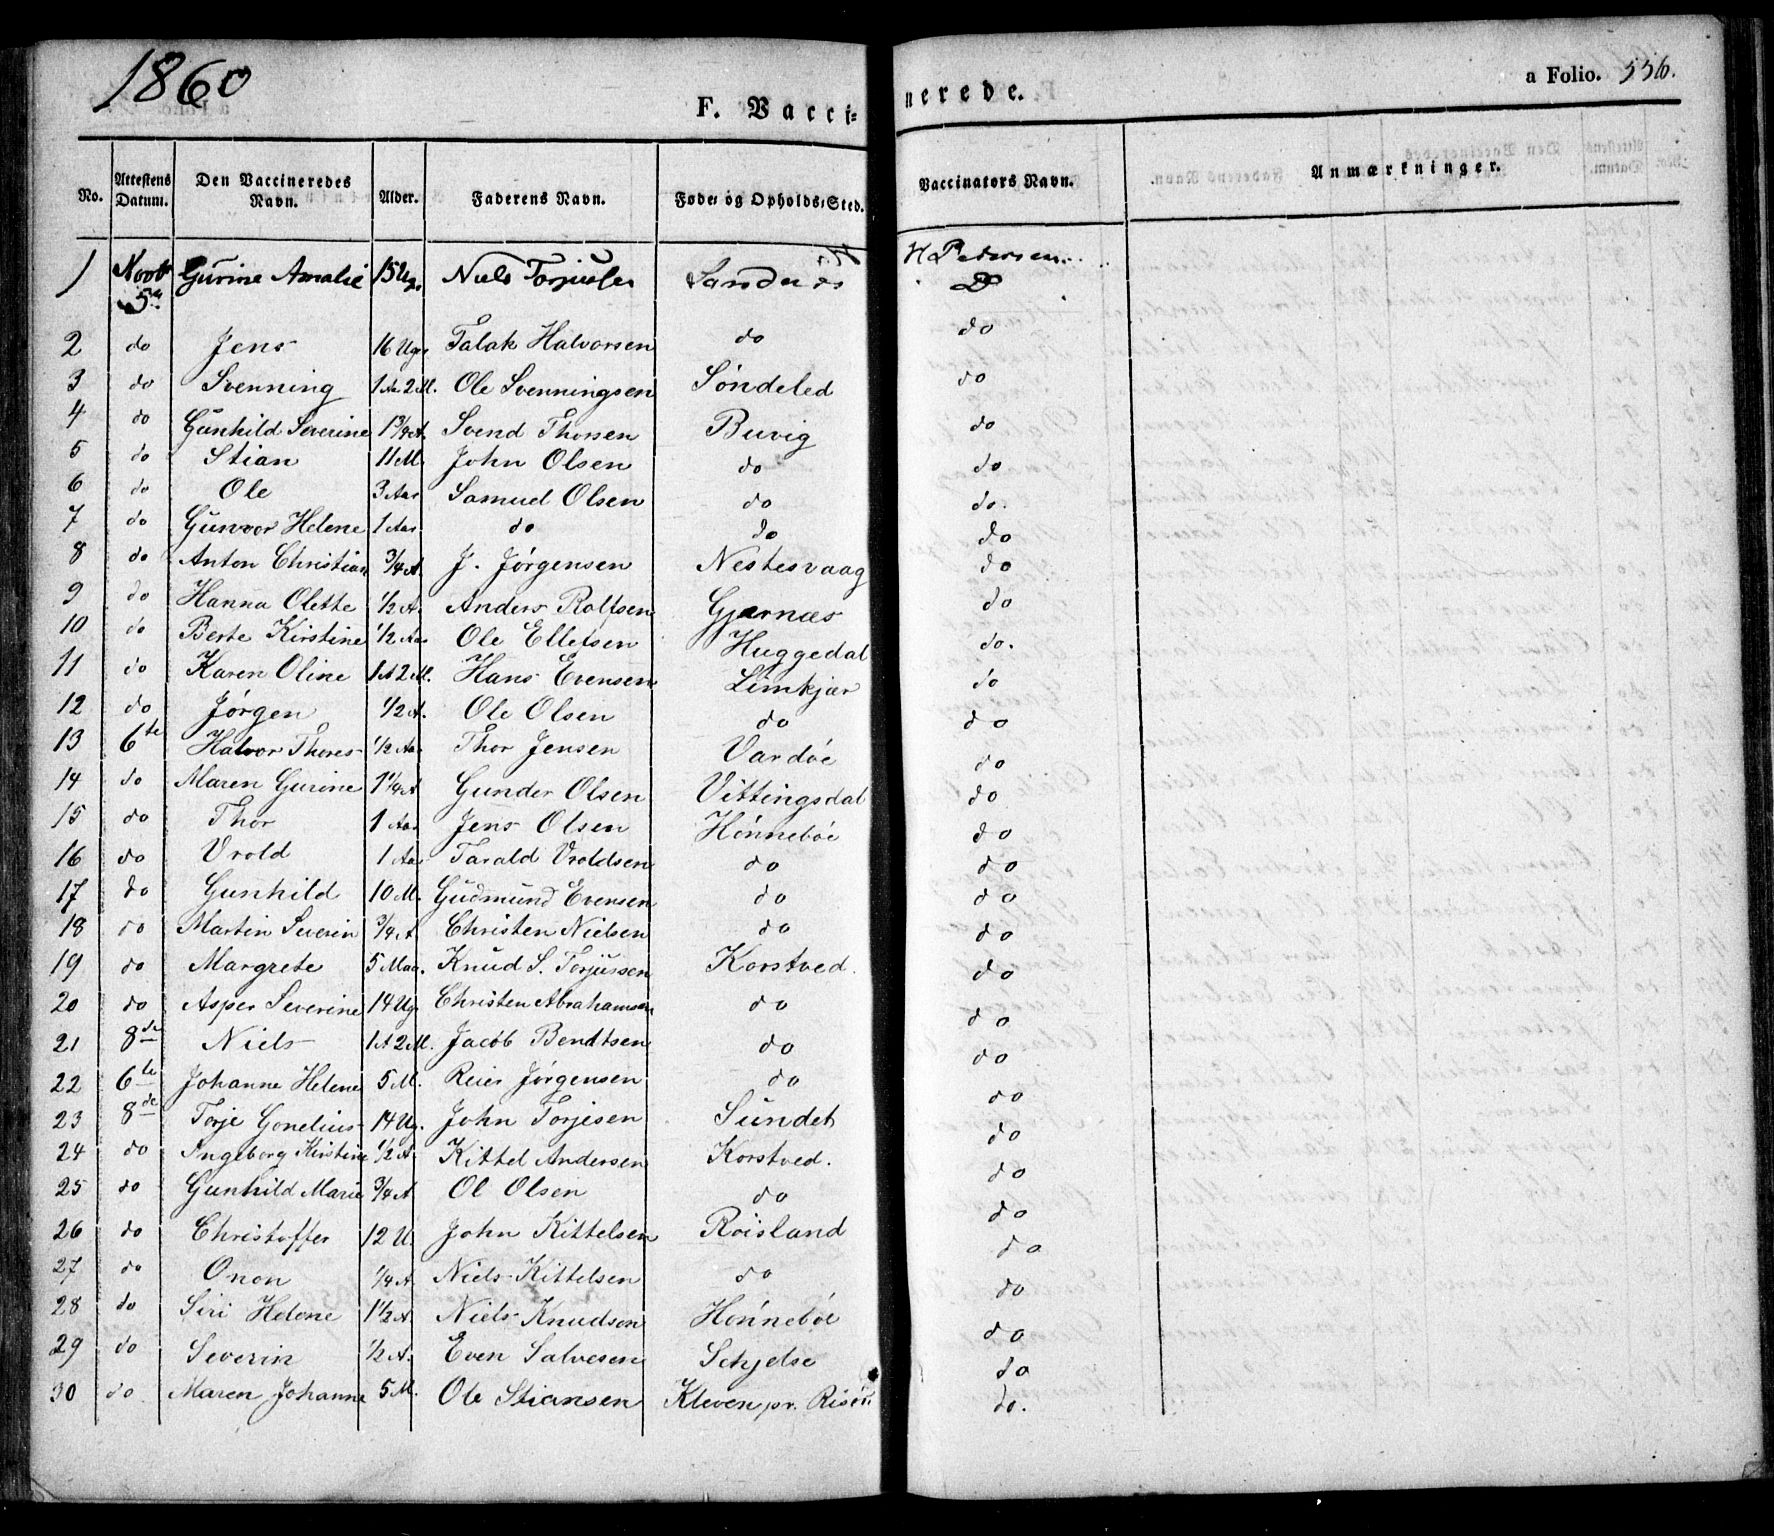 1860
F. Vacci-
nerede.
a Folio. 556.
No. Attestens Datum. Den Vaccineredes Navn. Alder. Faderens Navn. Føde- og Opholds-Sted. Vaccinators Navn. Anmærkninger.
1 Novbr 5te Gurine Amalie 15 Ug. Niels Torjusen H Pedersen
2 do Jens 16 Ugr Talak Halvorsen do do
3 do Svenning 1 Aa 2 M. Ole Svenningsen Søndeled do
4 do Gunhild Severine 1 3/4 A. Svend Thorsen Buvig do
5 do Stian 11 M. John Olsen do do
6 do Ole 3 Aar Samuel Olsen do do.
7 do Gunvor Helene 1 Aar do do do
8 do Anton Christian 3/4 A. J. Jørgensen Nestesvaag do
9 do Hanna Olette 1/2 A. Anders Rolfsen Gjernæs do
10 do Berte Kirstine 1/2 Aar Ole Ellefsen Huggedal do.
11 do Karen Oline 1 A 2 M. Hans Evensen Limkjær do
12 do Jørgen 1/2 A. Ole Olsen do do
13 6te Halvor Thores 1/2 Aar Thor Jensen Vardøe do
14 do Maren Gurine 1 1/4 A Gunder Olsen Vittingsdal do
15 do Thor 1 Aar Jens Olsen Hønnebøe do
16 do Vrold 1 Aar Tarald Vroldsen do do
17 do Gunhild 10 M. Gudmund Evensen do do
18 do Martin Severin 3/4 A Christen Nielsen do do
19 do Margrete 5 Maa. Knud S. Torjussen Korstved. do
20 do Asper Severine 14 Ug Christen Abrahamsen do do
21 8de Niels 1 A 2 M. Jacob Bendtsen do do
22 6te Johanne Helene 5 M. Reier Jørgensen do do
23 8de Torje Gonelius 14 Ug. John Torjesen Sundet do
24 do Ingeborg Kirstine 1/2 A. Kittel Andersen Korstved. do
25 do Gunhild Marie 3/4 A Ol Olsen do do
26 do Christoffer 12 U. John Kittelsen Røisland do
27 do Onon 1/4 A Niels Kittelsen do do
28 do Siri Helene 1 1/2 A. Niels Knudsen Hønnebøe do
29 do Severin 1/2 A. Even Salvesen Schjelse do
30 do Maren Johanne 5 M. Ole Stiansen Kleven pr. Risør do.